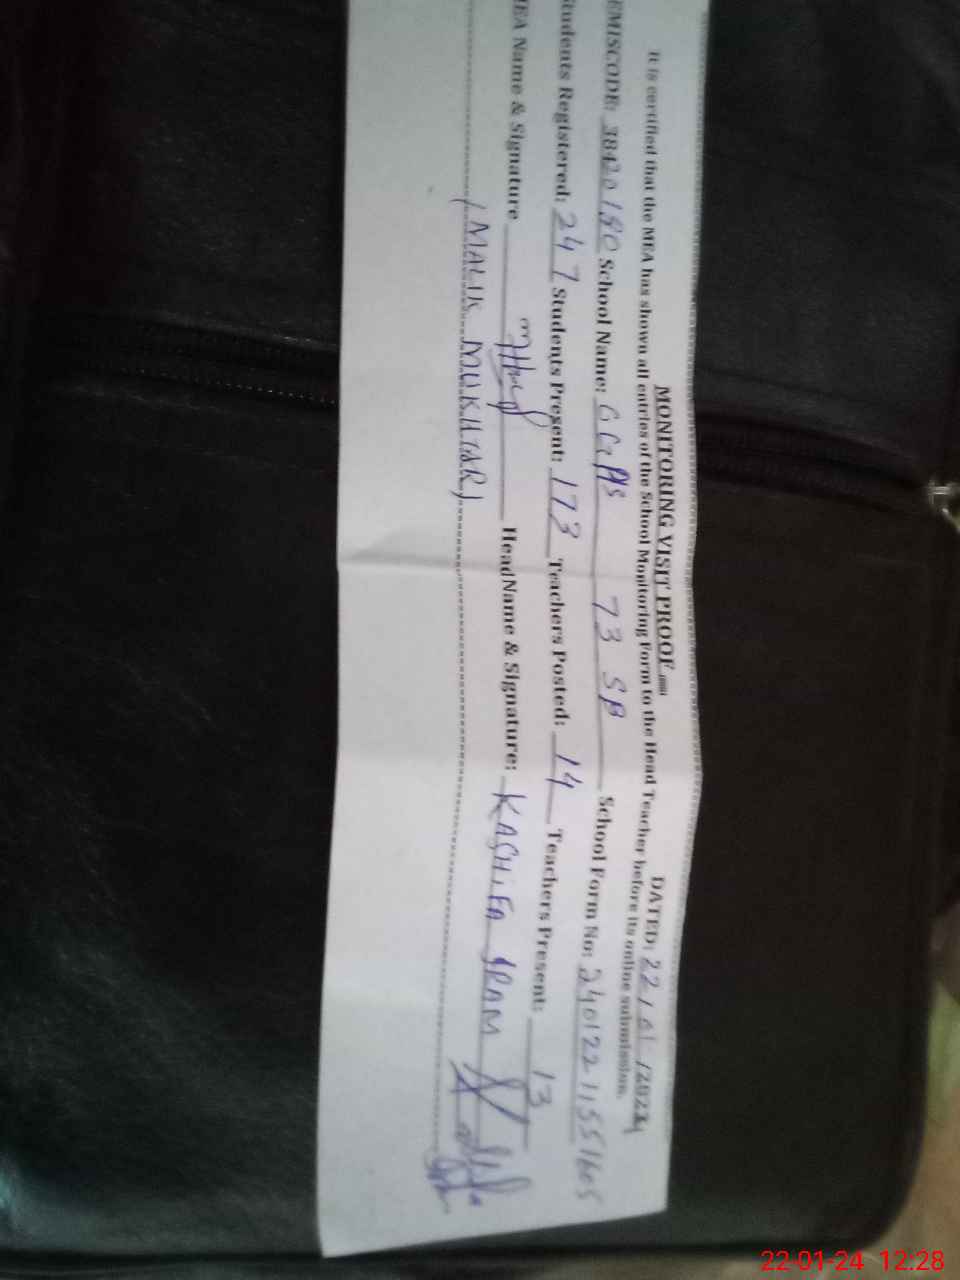 MONITORING VISIT PROOF DATED: 22/01/2024
It is certified that the MEA has shown all entries of the School Monitoring Form to the Head Teacher before its online submission.
EMISCODE: 38420180 School Name: GGPS 73 SB School Form No: 24012211551605
Students Registered: 247 Students Present: 173 Teachers Posted: 14 Teachers Present: 13
MEA Name & Signature HeadName & Signature: KASHIFA IRAM
(MALIK MUKHTAR)
22-01-24 12:28